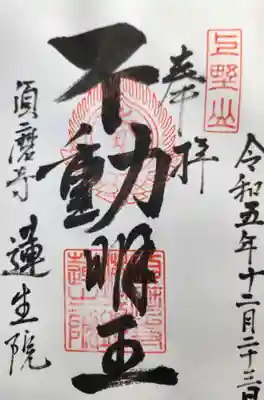 上野山
奉拝
令和五年十二月二十三日
不動明王
須磨寺
蓮生院